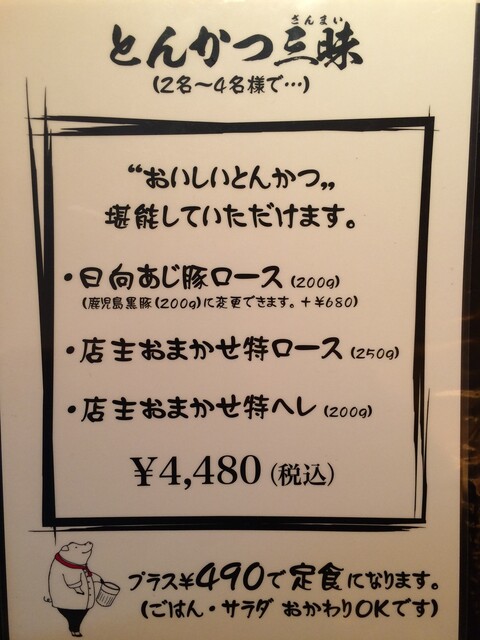 さんまい
とんかつ三昧
(2名〜4名様で…)
“おいしいとんかつ„
堪能していただけます。
・日向あじ豚ロース (200g)
(鹿児島黒豚(200g)に変更できます。+¥680)
・店主おまかせ特ロース (250g)
・店主おまかせ特ヘレ (200g)
¥4,480 (税込)
プラス¥490で定食になります。
(ごはん・サラダ おかわりOKです)